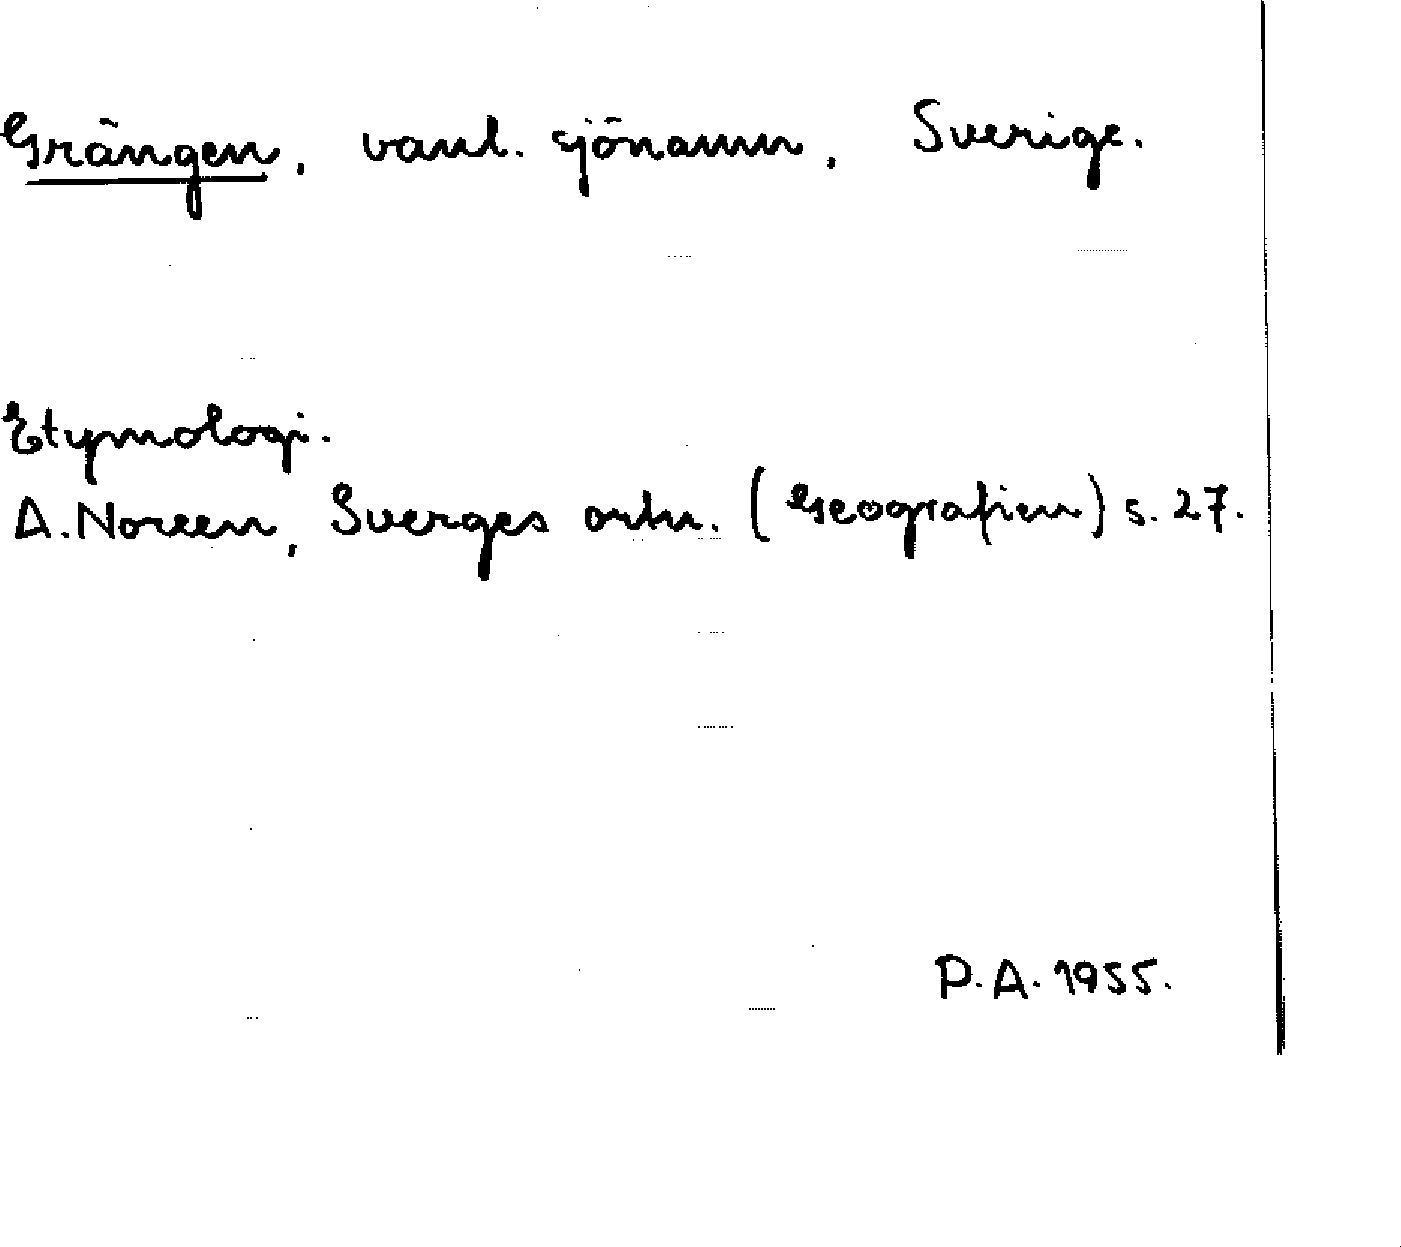 Grängen, vanl. sjönamn, Sverige.
Etymologi.
A. Noreen, Sverges ortn. (Geografien) s. 27.
P.A. 1955.